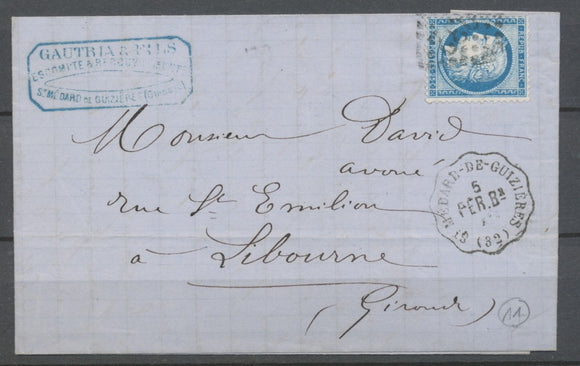 GAUTRIA & FILS
ESCOMPTE & RECOUV
ST MEDARD DE GUIZIERES (Gironde)
REPUB. FRANC.
Monsieur David
avoué
rue St Emilion
à Libourne
(Gironde)
ST MEDARD-DE-GUIZIERES
5
PER.BX
(32)
11